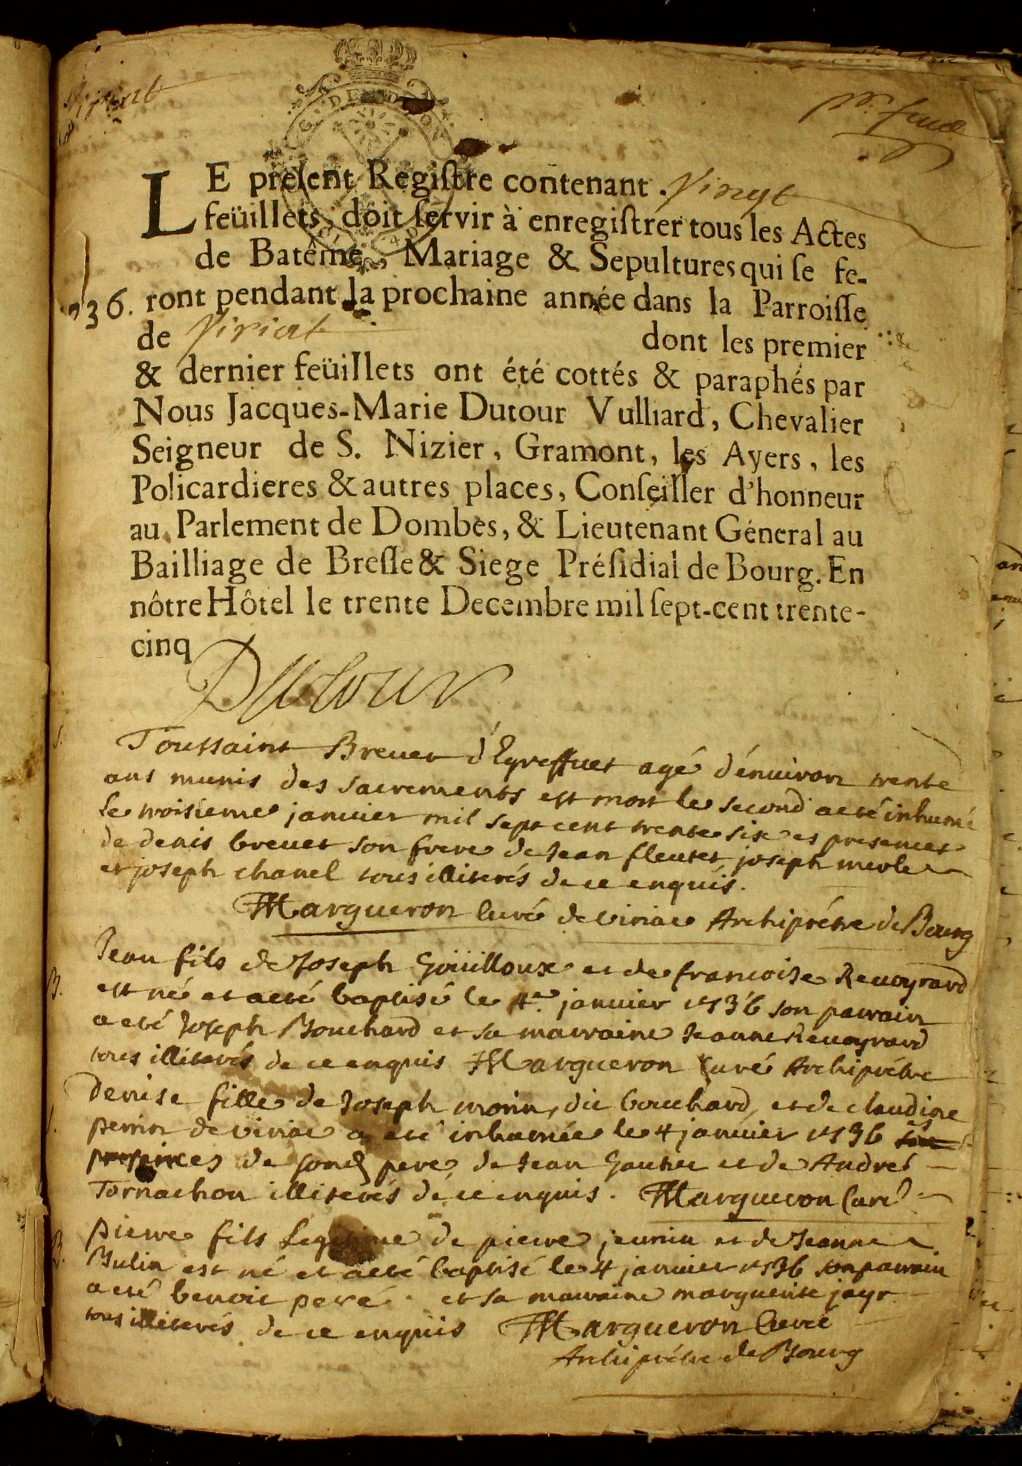 Viriat
LE present Regiſtre contenant Vingt
feüillets, doit ſervir à enregiſtrer tous les Actes
de Batême, Mariage & Sepultures qui ſe fe-
ront pendant la prochaine année dans la Parroiſſe
736.
de Viriat dont les premier
& dernier feüillets ont été cottés & paraphés par
Nous Jacques-Marie Dutour Vulliard, Chevalier
Seigneur de S. Nizier, Gramont, les Ayers, les
Policardieres & autres places, Conſeiller d'honneur
au Parlement de Dombes, & Lieutenant Géneral au
Bailliage de Breſſe & Siege Préſidial de Bourg. En
nôtre Hôtel le trente Decembre mil ſept-cent trente-
cinq
Dutour
S.
Toussaint Brevet d'Egreffuet agé d'environ trente
ans munis des sacrements est mort le second a eté inhumé
le troisieme janvier mil sept cent trente six es presences
de denis brevet son frere de Jean fleutet, joseph merle
et joseph chanel tous illiterés de ce enquis.
Margueron Curé de viriac Archiprétre de Bourg
B.
Jean fils de Joseph Goüilloux et de francoise Revoyrard
est né et a eté baptisé le 4e. janvier 1736 son parrain
a eté Joseph Bouchard et sa marraine Jeanne Revoyrard
tous illiterés de ce enquis Margueron Curé Archiprétre
S.
Denise fille de Joseph morin, dit bouchard, et de claudine
perrin de viriac a eté inhumée le 4 janvier 1736
presences de sond pere de Jean Gautier et de André
Tornachon illiterés de ce enquis. Margueron Curé
B.
pierre fils Legitime de pierre jeunin et de Jeanne
Bulin est né et a eté baptisé le 4 janvier 1736 son parrain
a eté benoit peré et sa marraine marguerite jayr
tous illiterés de ce enquis Margueron Curé
Archiprétre de Bourg